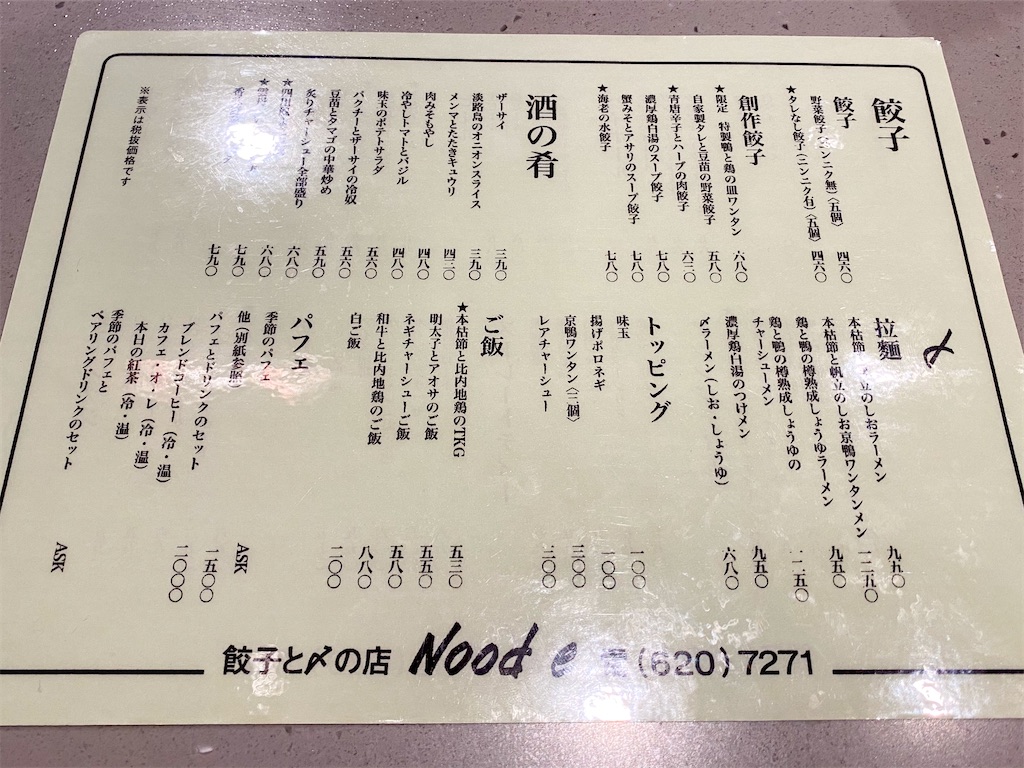 餃子
餃子
野菜餃子(ンニク無)〈五個〉 四六〇
★タレなし餃子(ニンニク有)〈五個〉 四六〇
創作餃子
★限定 特製鴨と鶏の皿ワンタン 六八〇
自家製タレと豆苗の野菜餃子 五八〇
★青唐辛子とハーブの肉餃子 六三〇
濃厚鶏白湯のスープ餃子 七八〇
蟹みそとアサリのスープ餃子 七八〇
★海老の水餃子 七八〇
酒の肴
ザーサイ 三九〇
淡路島のオニオンスライス 三九〇
メンマとたたきキュウリ 四三〇
肉みそもやし 四八〇
冷やしトマトとバジル 四八〇
味玉のポテトサラダ 五六〇
パクチーとザーサイの冷奴 五六〇
豆苗とタマゴの中華炒め 五九〇
炙りチャーシュー全部盛り 六八〇
★四川 六八〇
★ 七九〇
香 七九〇
※表示は税抜価格です
〆
拉麺
本枯節 立のしおラーメン 九五〇
本枯節と帆立のしお京鴨ワンタンメン 一二五〇
鶏と鴨の樽熟成しょうゆラーメン 九五〇
鶏と鴨の樽熟成しょうゆの
チャーシューメン 一二五〇
濃厚鶏白湯のつけメン 九五〇
〆ラーメン(しお・しょうゆ) 六八〇
トッピング
味玉 一〇〇
揚げボロネギ 一〇〇
京鴨ワンタン〈三個〉 三〇〇
レアチャーシュー 三〇〇
ご飯
★本枯節と比内地鶏のTKG 五三〇
明太子とアオサのご飯 五五〇
ネギチャーシューご飯 五八〇
和牛と比内地鶏のご飯 八八〇
白ご飯 二〇〇
パフェ
季節のパフェ
他(別紙参照) ASK
パフェとドリンクのセット 一五〇〇
ブレンドコーヒー(冷・温) 二〇〇〇
カフェ・オ・レ(冷・温)
本日の紅茶(冷・温)
季節のパフェと
ペアリングドリンクのセット ASK
餃子と〆の店 Nood e (620)7271